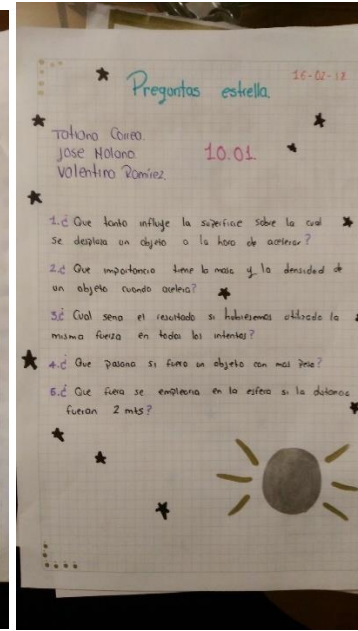 16-02-18
Pregontas estrella.
Tatiana Correa.
Jose Molano
Valentina Ramirez.
10.01.
1.¿ Que tanto influye la superficie sobre la cual
se desplaza un objeto a la hora de acelerar?
2.¿ Que importancia tiene la masa y la densidad de
un objeto cuando acelera?
3.¿ Cual seria el resultado si hubiesemos utilizado la
misma fuerza en todos los intentos?
4.¿ Que pasaria si fuera un objeto con mas peso?
5.¿ Que fuerza se emplearia en la esfera si la distancia
fueran 2 mts?